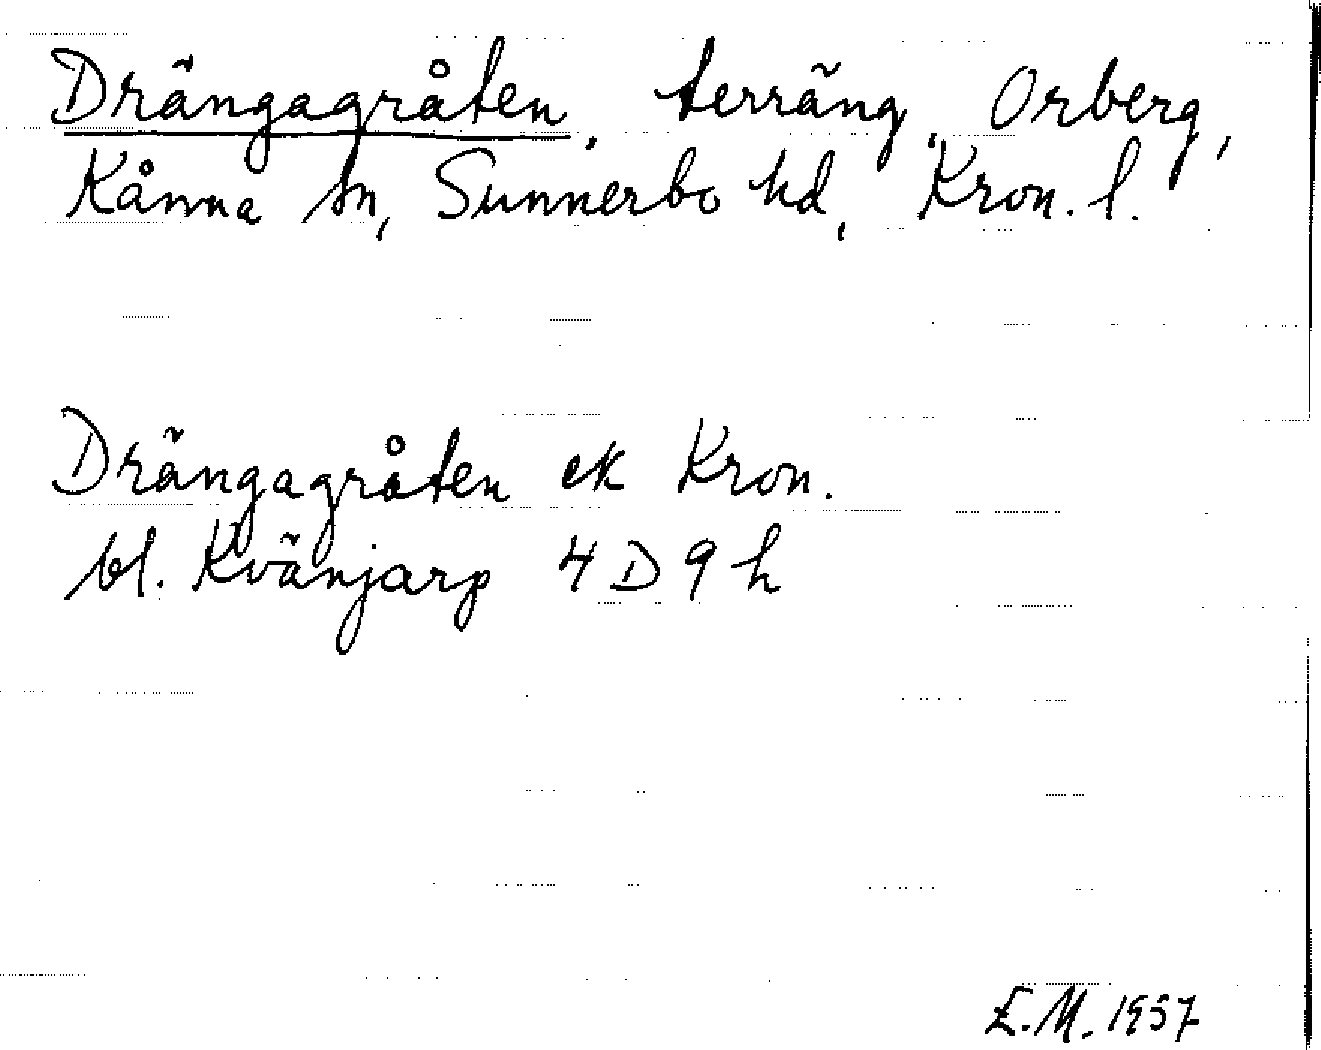 Drängagråten, terräng, Orberg,
Kånna sn, Sunnerbo hd, Kron. l.
Drängagråten ek Kron.
bl. Kvänjarp 4 D 9 h
E.M. 1957